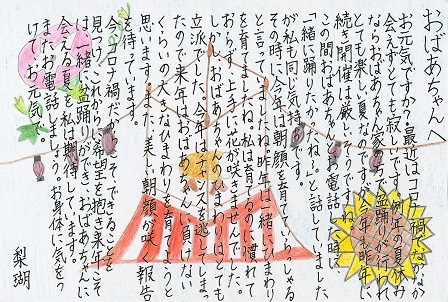 おばあちゃんへ
お元気ですか？最近はコロナ禍でなかなか
会えずとても寂しいです。例年の夏休み
ならおばあちゃん家で盆踊りが行われ
とても楽しい夏なのですが、今年昨年
続き開催は厳しいのですね。
この間おばあちゃんとお電話した時に
「一緒に踊りたかったね。」と話していました
が私も同じ気持ちです。
その時に、今年は朝顔を育てていらっしゃる
と言っていましたね。昨年は一緒にひまわり
を育てましたね。私は育てるのに慣れて
おらず、上手に花が咲きませんでした。
しかし、おばあちゃんのひまわりはとても
立派でした。今年はチャンスを逃してしまっ
たので来年はおばあちゃんに負けない
くらいの大きなひまわりを育てようと
思います。また、美しい朝顔が咲く報告
を待っています。
今のコロナ禍だからこそできることを
見つけ、これからの希望を抱き来年こそ
は一緒に盆踊りができ、おばあちゃんに
会える夏を私は期待しています。
またお電話しましょう。お身体に気をつ
けてお元気で。
梨瑚